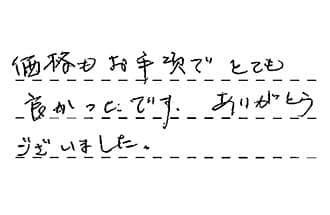 価格もお手頃でとても
良かったです。ありがとう
ございました。